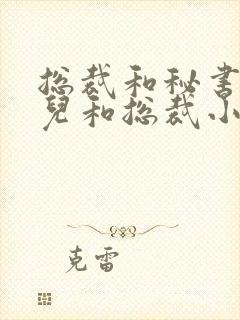 总裁和秘书
儿和总裁小
克雷